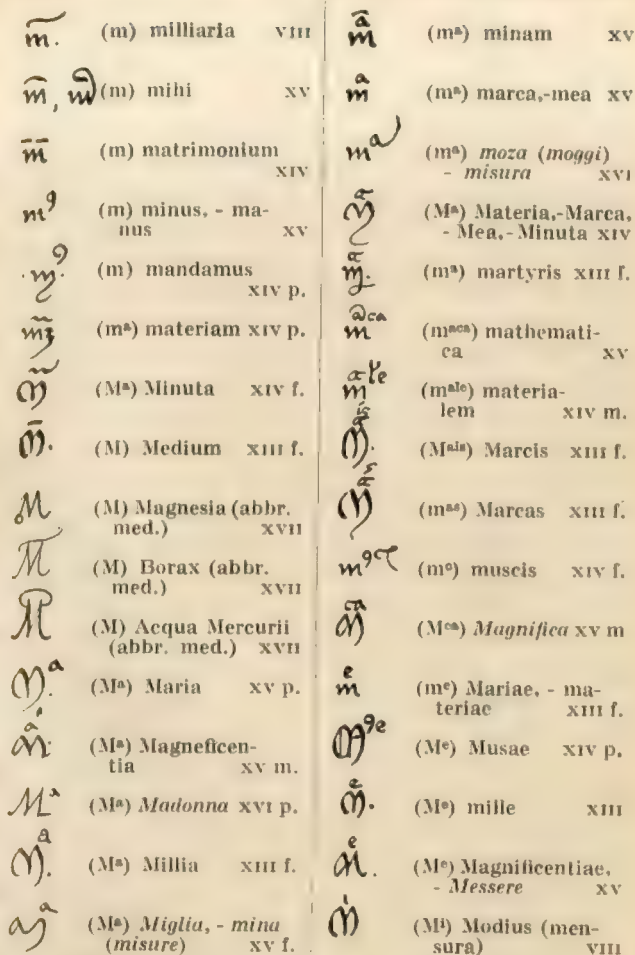 (m) milliaria VIII
(m) mihi XV
(m) matrimonium
XIV
(m) minus, - ma-
nus XV
(m) mandamus
XIV p.
(mᵃ) materiam XIV p.
(Mᵃ) Minuta XIV f.
(M) Medium XIII f.
(M) Magnesia (abbr.
med.) XVII
(M) Borax (abbr.
med.) XVII
(M) Acqua Mercurii
(abbr. med.) XVII
(Mᵃ) Maria XV p.
(Mᵃ) Magneficen-
tia XV m.
(Mᵃ) Madonna XVI p.
(Mᵃ) Millia XIII f.
(Mᵃ) Miglia, - mina
(misure) XV f.
(mᵃ) minam XV
(mᵃ) marca,-mea XV
(mᵃ) moza (moggi)
- misura XVI
(Mᵃ) Materia,-Marca,
- Mea,- Minuta XIV
(mᵃ) martyris XIII f.
(mᵃᶜᵃ) mathemati-
ca XV
(mᵃˡᵉ) materia-
lem XIV m.
(Mᵃⁱˢ) Marcis XIII f.
(mᵃˢ) Marcas XIII f.
(mᶜ) muscis XIV f.
(Mᶜᵃ) Magnifica XV m
(mᵉ) Mariae, - ma-
teriae XIII f.
(Mᵉ) Musae XIV p.
(Mᵉ) mille XIII
(Mᵉ) Magnificentiae,
- Messere XV
(Mⁱ) Modius (men-
sura) VIII